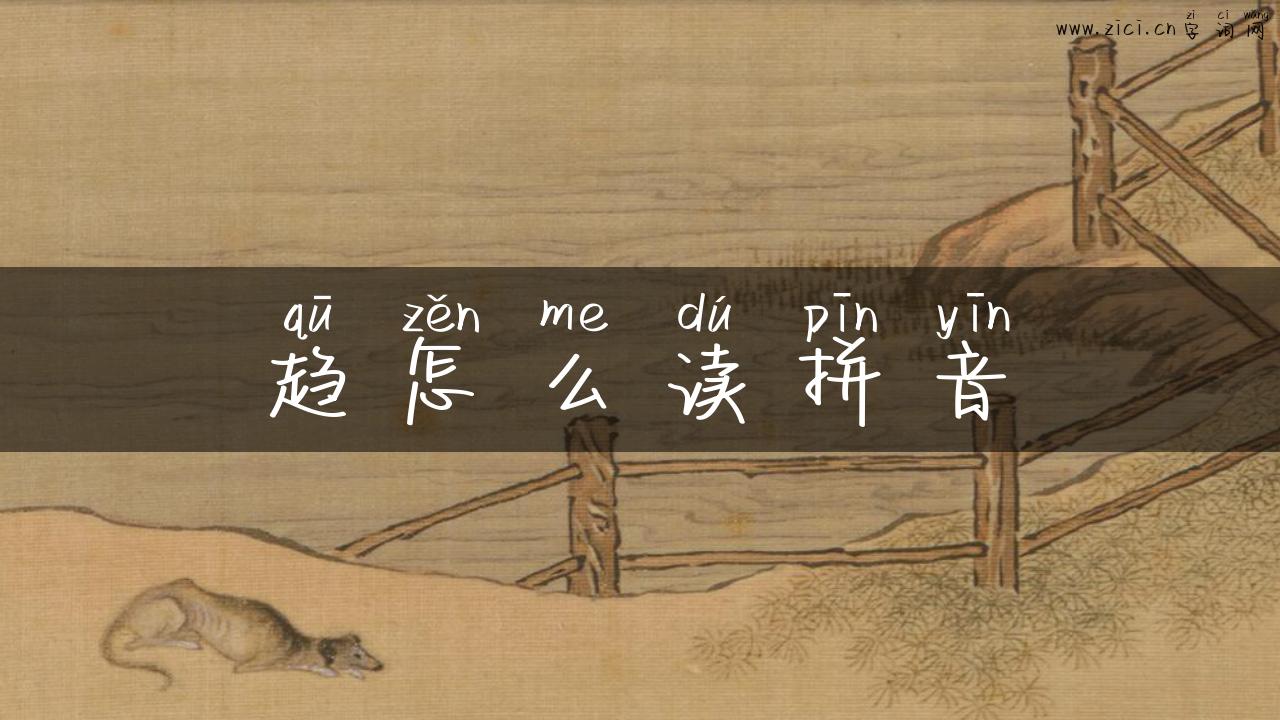 zi ci wang
www.zici.cn 字词网
qū zěn me dú pīn yīn
趋怎么读拼音